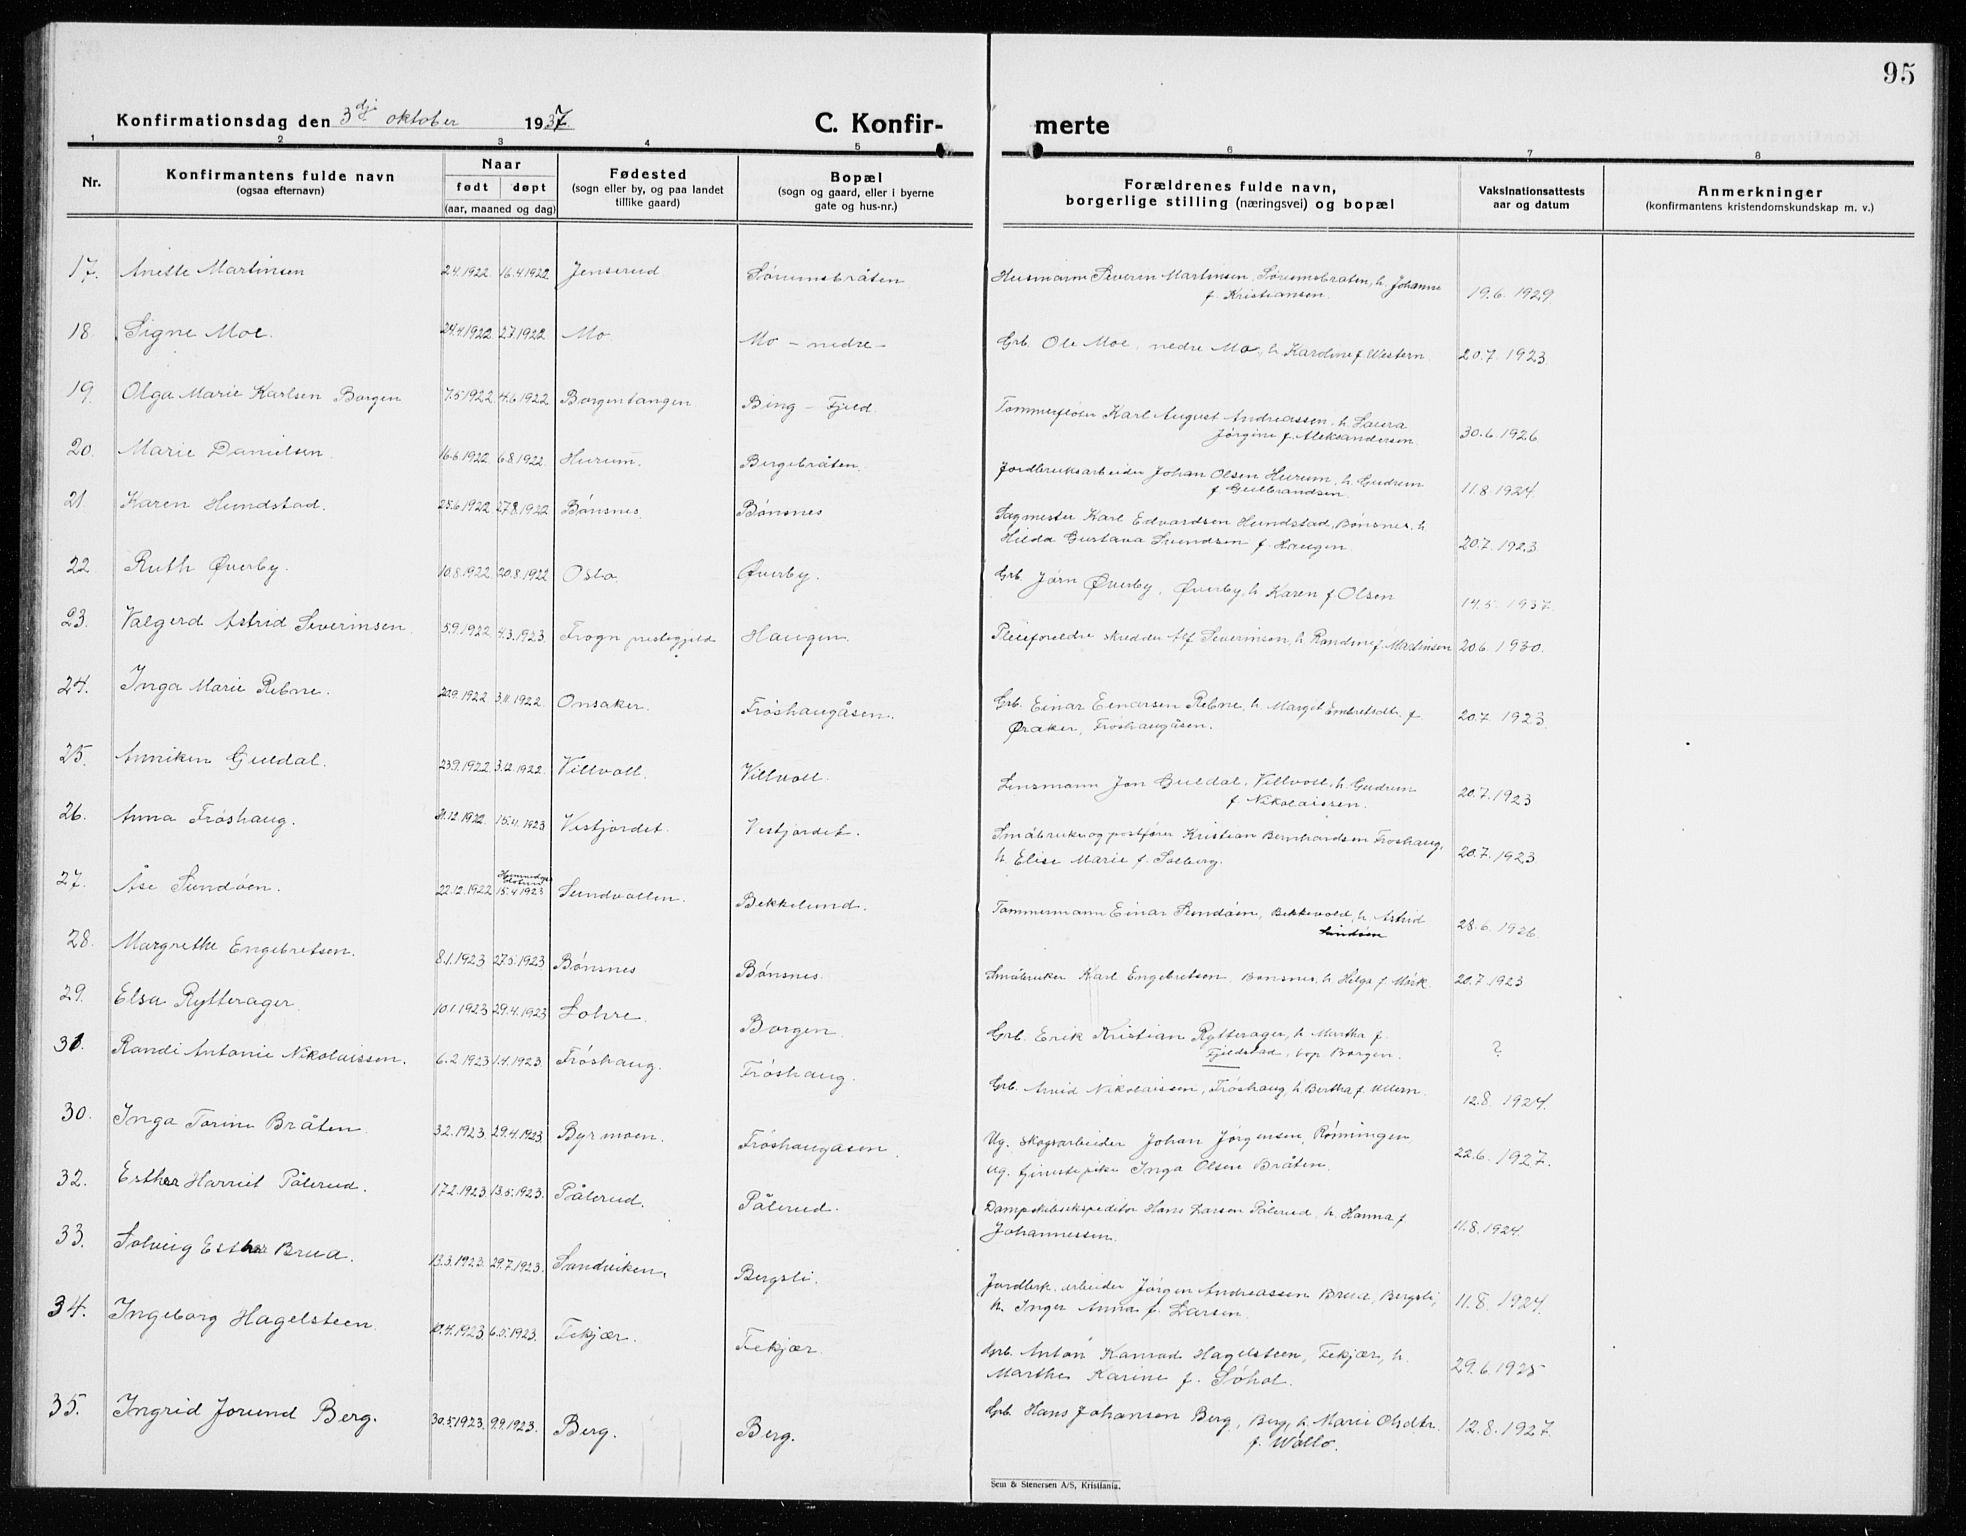 95
Konfirmationsdag den 3dje oktober 1937.
C. Konfir-
merte
1 2 3 4 5 6 7 8
Nr.
Konfirmantens fulde navn
(ogsaa efternavn)
Naar
født døpt
(aar, maaned og dag)
Fødested
(sogn eller by, og paa landet
tillike gaard)
Bopæl
(sogn og gaard, eller i byerne
gate og hus-nr.)
Forældrenes fulde navn,
borgerlige stilling (næringsvei) og bopæl
Vaksinationsattests
aar og datum
Anmerkninger
(konfirmantens kristendomskundskap m. v.)
17. Anette Martinsen 2.4.1922 16.4.1922 Jenserud Sørumsbråten Husmann Severin Martinsen, Sørumsbraten, h. Johanne
f. Kristiansen. 19.6.1929
18. Signe Moe. 24.4.1922 2.7.1922 Mo Mo - nedre - Grb. Ole Moe, nedre Mo, h. Kardine f. Western. 20.7.1923
19. Olga Marie Karlsen Borgen 7.5.1922 4.6.1922 Borgentangen Bing - Fjeld. Tømmerfløter Karl August Andreassen, h. Laura
Jørgine f. Aleksandersen 30.6.1926
20. Marie Danielsen 16.6.1922 6.8.1922 Hurum. Bergebråten. Jordbruksarbeider Johan Olsen Hurum, h. Gudrun
f. Gulbrandsen. 11.8.1924
21. Karen Hundstad. 25.6.1922 27.8.1922 Bønsnes. Bønsnes Sagmester Karl Edvardsen Hundstad, Bønsnes, h.
Hilda Gustava Svendsen f. Haugen. 20.7.1923
22. Ruth Øverby. 10.8.1922 20.8.1922 Oslo Øverby. Grb. Jørn Øverby, Øverby, h. Karen f. Olsen 14.5.1937.
23. Valgerd Astrid Severinsen 5.9.1922 4.3.1923. Frogn prestegjeld Haugen. Pleieforeldre skredder Alf Severinsen, h. Randine f. Martinsen 20.6.1930.
24. Inga Marie Rebne. 20.9.1922 3.11.1922. Onsaker. Frøshaugåsen. Grb. Einar Einarsen Rebne, h. Margit Embretsdtr. f.
Øraker, Frøshaugåsen. 20.7.1923
25. Anniken Guldal. 23.9.1922 3.12.1922. Villvoll. Villvoll. Lensmann Jon Guldal, Villvoll, h. Gudrun
f. Nikolaissen. 20.7.1923
26. Anna Frøshaug. 21.12.1922. 15.4.1923 Vestjordet. Vestjordet. Småbruker og postfører Kristian Bernhardsen Frøshaug,
h. Elise Marie f. Solberg. 20.7.1923
27. Åse Sundøen. 22.12.1922 15.4.1923 Sundvollen. Bekkelund. Tømmermann Einar Sundøen, Bekkevold, h. Astrid
Sundøen 28.6.1926.
28. Margrethe Engebretsen. 8.1.1923 27.5.1923 Bønsnes Bønsnes. Småbruker Karl Engebretsen, Bønsnes, h. Helga f. Mørk. 20.7.1923
29. Elsa Rytterager. 10.1.1923 29.4.1923 Lohre. Borgen Grb. Erik Kristian Rytterager, h. Martha f.
Fjeldstad, bop Borgen. ?
31. Randi Antonie Nikolaissen. 6.2.1923 1.4.1923. Frøshaug. Frøshaug. Grb. Arvid Nikolaissen, Frøshaug, h. Bertha f. Ullern. 12.8.1924.
30. Inga Torine Bråten. 3.2.1923. 29.4.1923. Byrmoen. Frøshaugåsen. Ug. skogsarbeider Johan Jørgensen Rønningen
ug. tjenestepike Inga Olsen Bråten. 22.6.1927.
32. Esther Harriet Pålerud. 17.2.1923. 13.5.1923. Pålerud. Pålerud. Dampskibsekspeditør Hans Larsen Pålerud, h. Hanna f.
Johannessen. 11.8.1924.
33. Solveig Esther Brua. 13.3.1923. 29.7.1923. Sandviken. Bergsli. Jordbrk. arbeider Jørgen Andreassen Brua, Bergsli,
h. Inger Anna f. Larsen. 11.8.1924.
34. Ingeborg Hagelsteen. 10.4.1923. 6.5.1923. Fekjær. Fekjær. Grb. Anton Konrad Hagelsteen, Fekjær, h.
Marthe Karine f. Søhol. 29.6.1925
35. Ingrid Jorund Berg. 30.5.1923. 9.9.1923. Berg. Berg. Grb. Hans Johansen Berg, Berg, h. Marie Olsdtr.
f. Wollo. 12.8.1927.
Sem & Stenersen A/S, Kristiania.